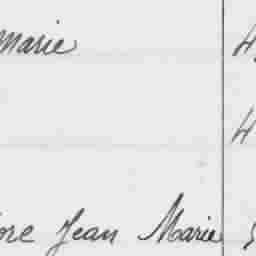 Marie 4
4
ore Jean Marie 5